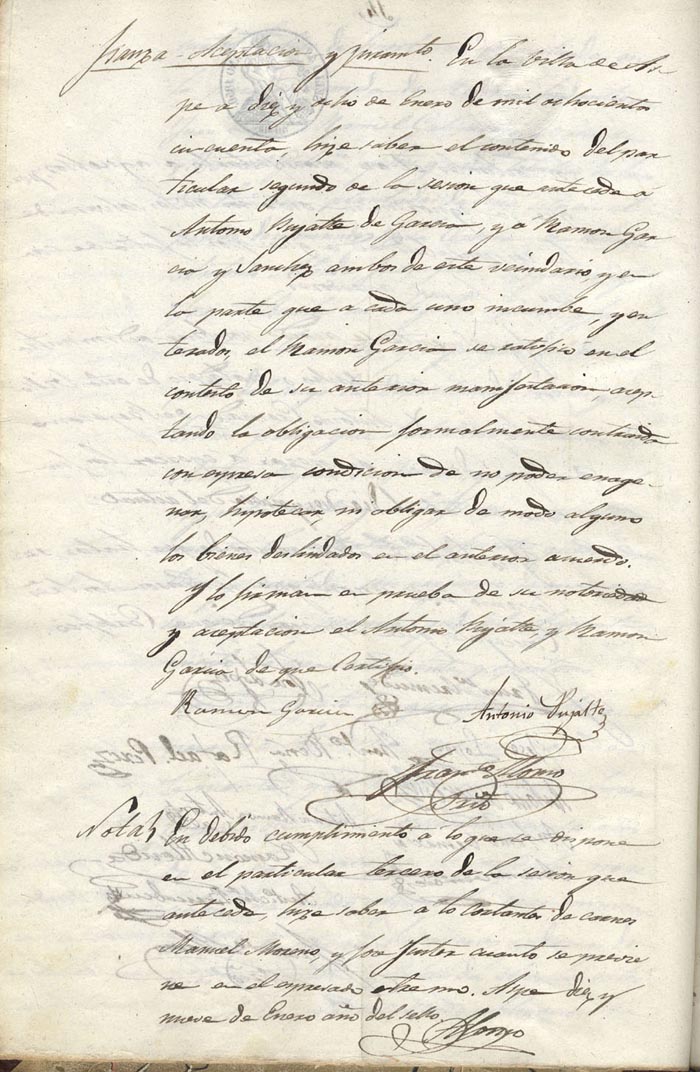 Fianza Aceptacion y Juramto. En la Villa de As-
pe a diez y ocho de Enero de mil ochocientos
cincuenta, hize saber el contenido del par
ticular segundo de la sesion que antecede a
Antonio Pujalte de Garcia, y a Ramon Gar
cia y Sanchez ambos de este vecindario, y en
la parte que a cada uno incumbe, y en
terados, el Ramon Garcia se ratifico en el
contesto de su anterior manifestacion, acep
tando la obligacion formalmente contraida
con espresa condicion de no poder enage
nar, hipotecar, ni obligar de modo alguno
los bienes deslindados en el anterior acuerdo.
Y lo firman en prueba de su notoriedad
y aceptacion el Antonio Pujalte, y Ramon
Garcia de que Certifico.
Ramon Garcia
Antonio Pujalte
Franco Alonso
Srio
Nota En debido cumplimiento a lo que se dispone
en el particular tercero de la sesion que
antecede, hize saber a los Cortantes de carnes
Manuel Moreno, y José cuanto se previe
ne en el espresado estremo. Aspe diez y
nueve de Enero año del sello.
Alonso